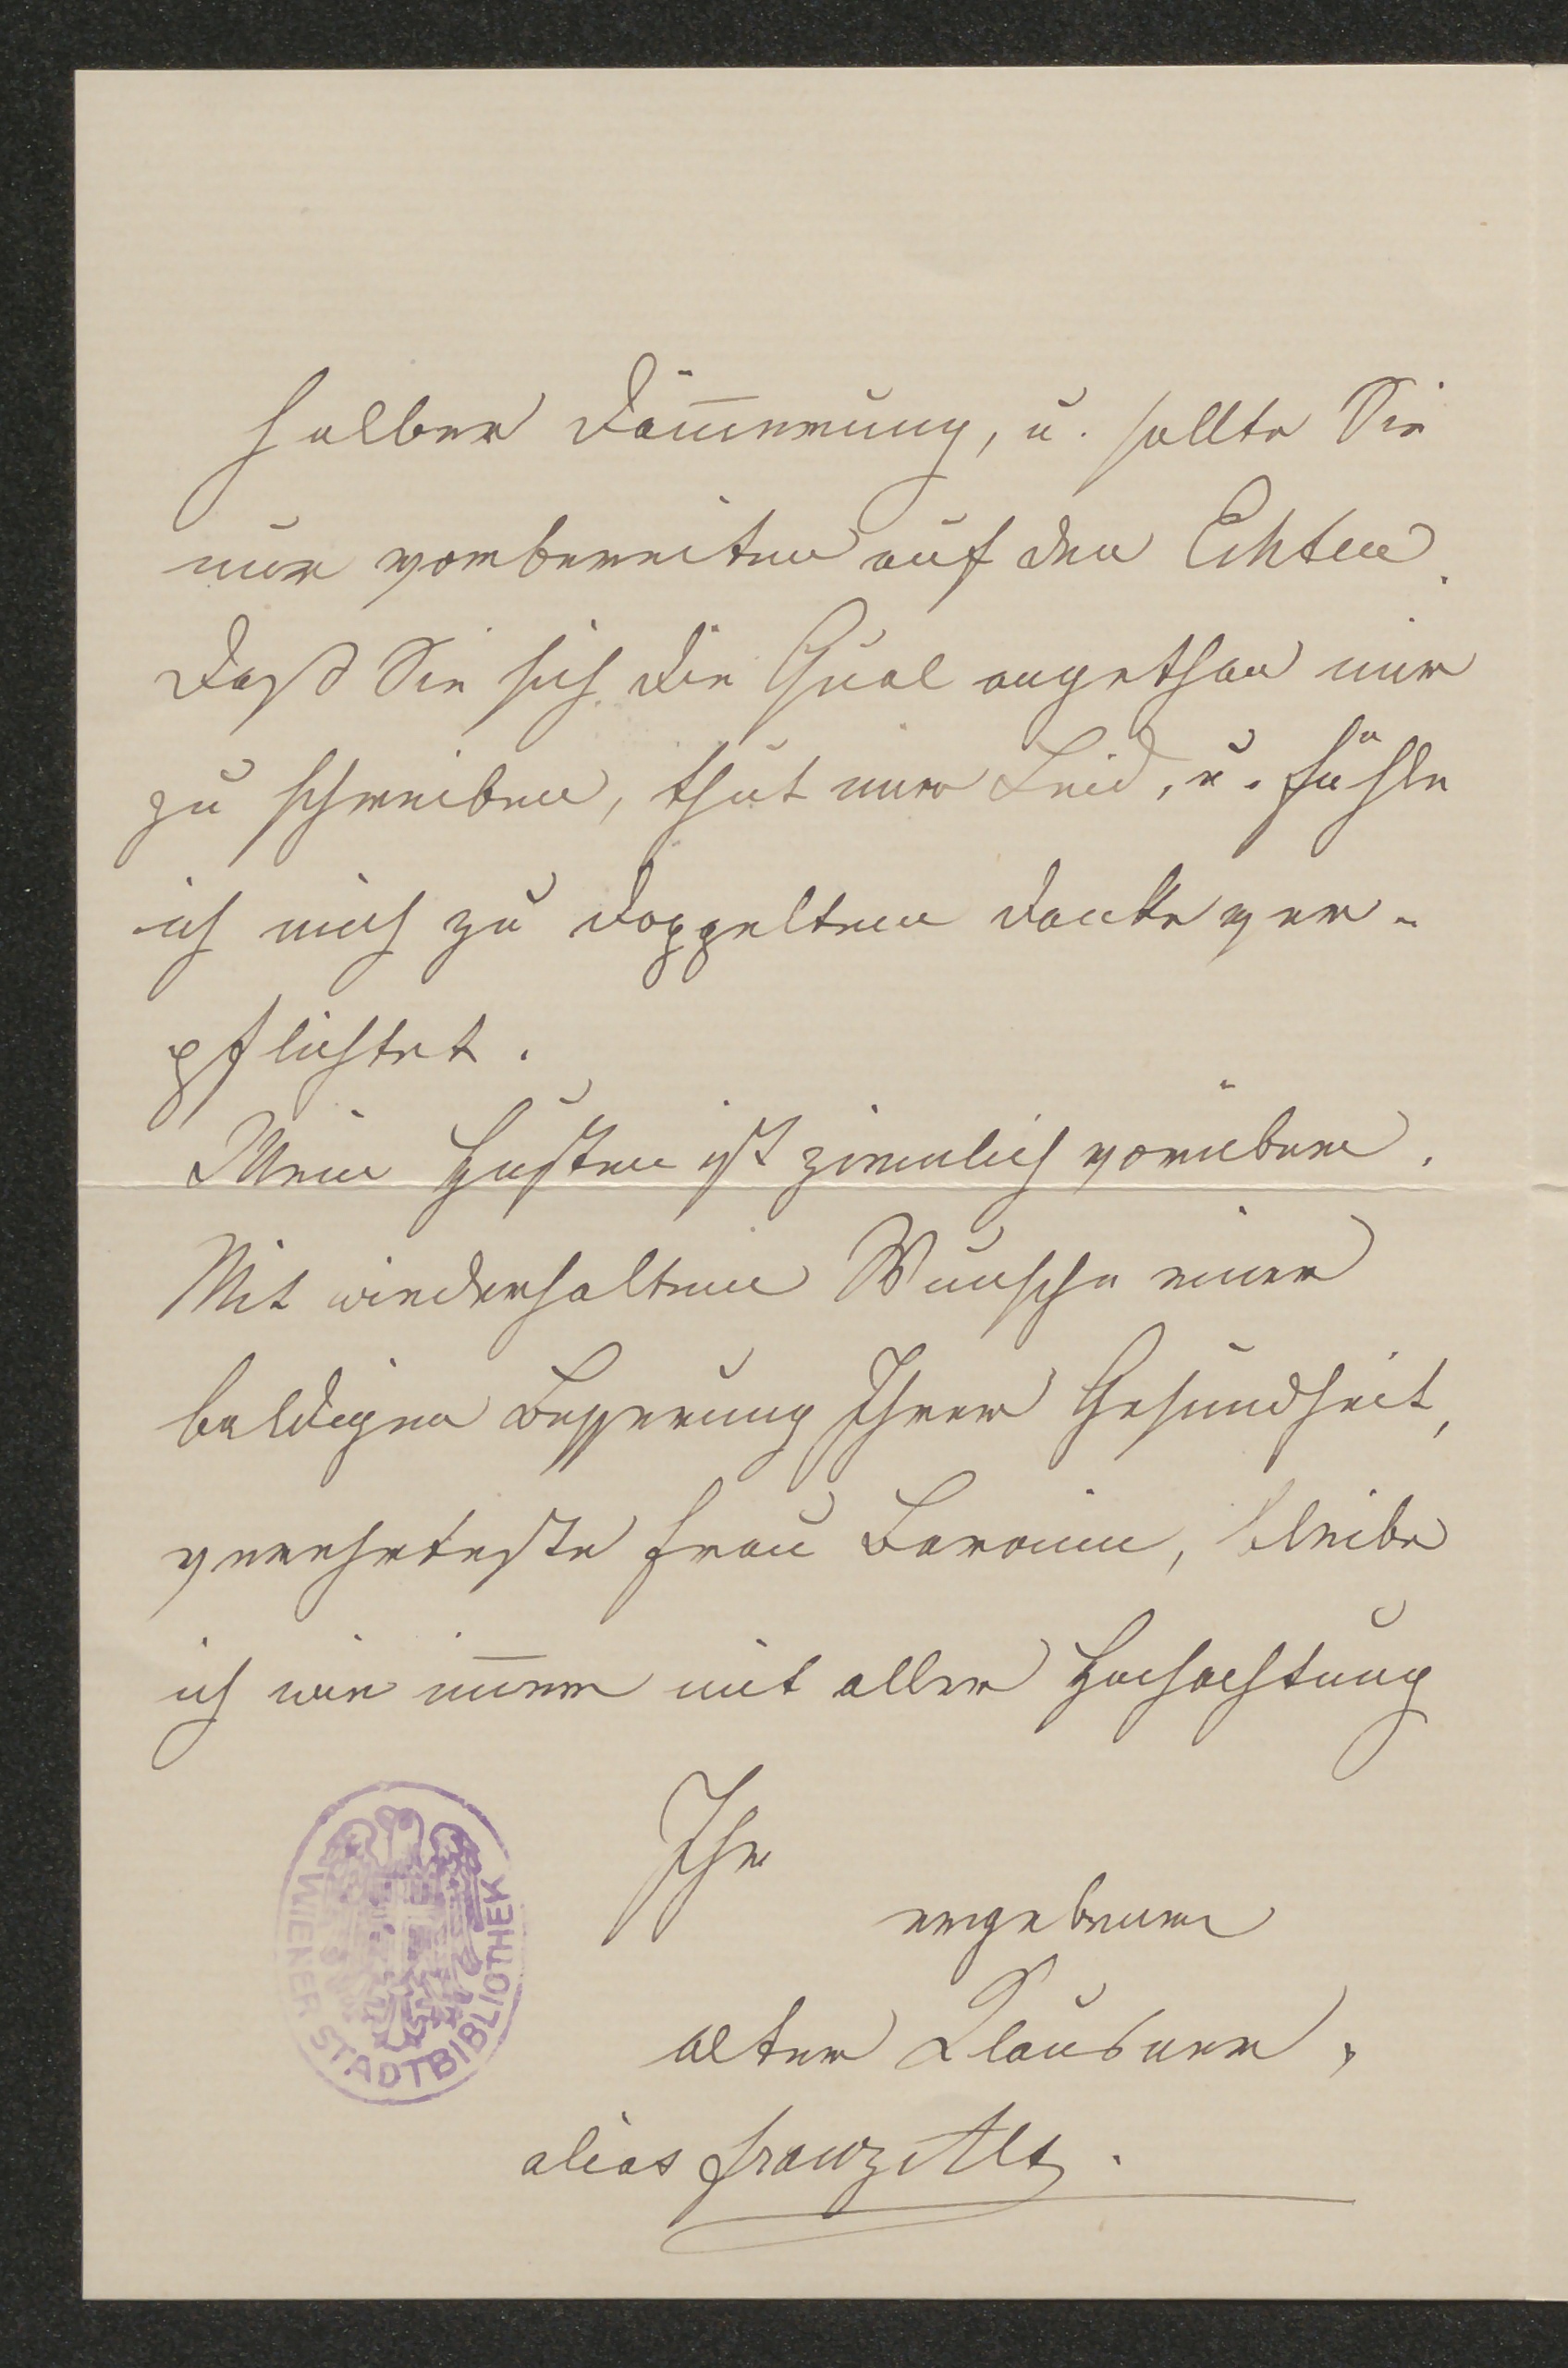 halber Dam̄erung, u. sollte Sie
nur vorbereiten auf den Echten.
Daß Sie sich die Qual angethan mir
zu schreiben, thut mir Leid, u. fühle
ich mich zu doppeltem Danke ver-
pflichtet.
Mein Husten ist ziemlich vorüber.
Mit wiederholtem Wunsche einer
baldigen Besserung Ihrer Gesundheit,
verehrteste Frau Baronin, bleibe
ich wie im̄er mit aller Hochachtung
Ihr
ergebener
alter Klausner,
alias Franz Alt.
WIENER STADTBIBLIOTHEK